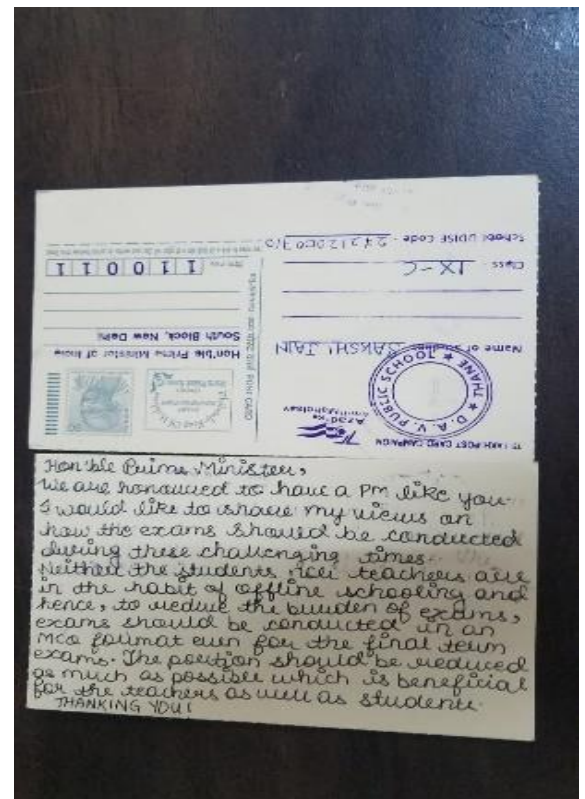 75 LAKH POST CARD CAMPAIGN
Azadi Ka
Amrit Mahotsav
D.A.V. PUBLIC SCHOOL
THANE
Name of Student SAKSHI JAIN
Class IX-C
School UDISE Code -
POST CARD
Hon'ble Prime Minister of India
South Block, New Delhi
110011
Hon'ble Prime Minister,
We are honoured to have a PM like you.
I would like to share my views on
how the exams should be conducted
during these challenging times.
Neither the students, teachers are
in the habit of offline schooling and
hence, to reduce the burden of exams,
exams should be conducted in an
MCQ format even for the final term
exams. The portion should be reduced
as much as possible which is beneficial
for the teachers as well as students.
THANKING YOU!